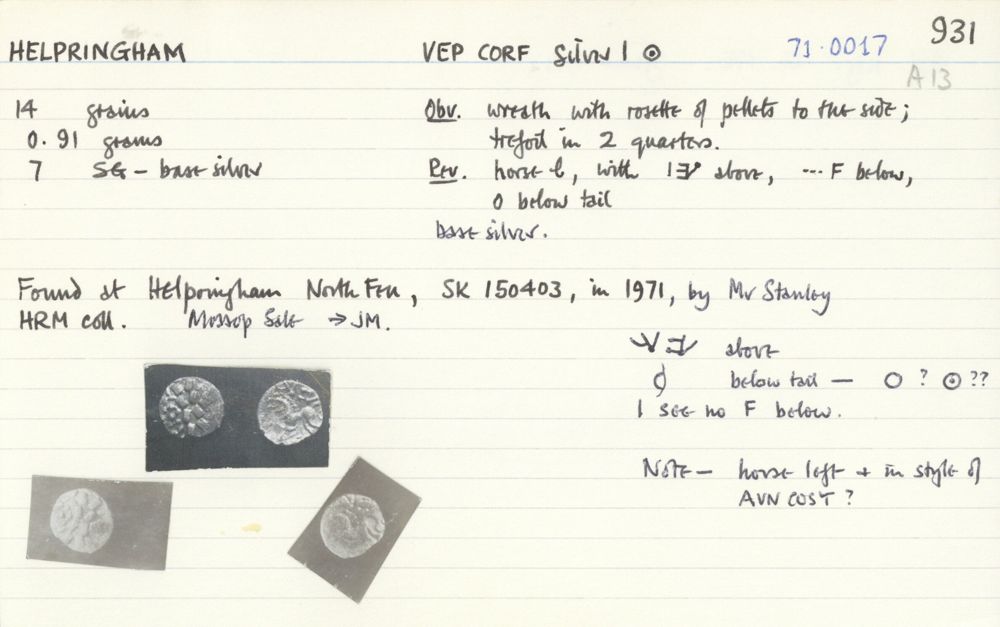 HELPRINGHAM VEP CORF silver 1 ⊙ 71·0017 931
A13
14 grains
0.91 grams
7 SG – base silver
Obv. wreath with rosette of pellets to the side;
trefoil in 2 quarters.
Rev. horse l, with above, ---F below,
O below tail
base silver.
Found at Helpringham North Fen, SK 150403, in 1971, by Mr Stanley
HRM coll. Mossop Sale → JM.
above
below tail — O ? ⊙ ??
I see no F below.
Note — horse left + in style of
AVN COST ?